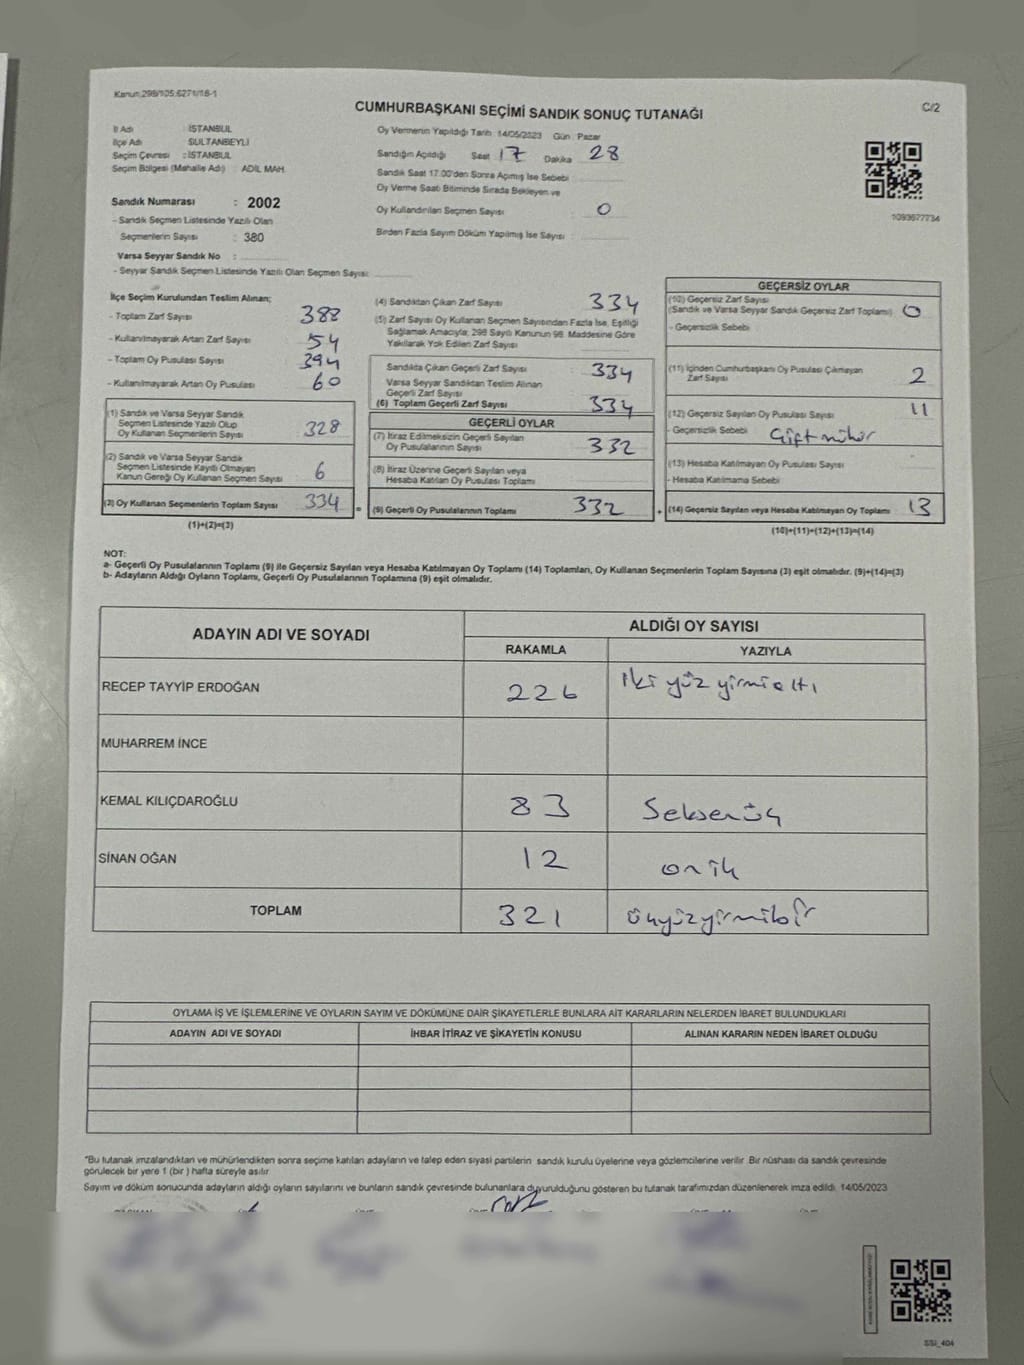 Kanun:298/105,6271/18-1
C/2
CUMHURBAŞKANI SEÇİMİ SANDIK SONUÇ TUTANAĞI
İl Adı : İSTANBUL
İlçe Adı : SULTANBEYLİ
Seçim Çevresi : İSTANBUL
Seçim Bölgesi (Mahalle Adı) : ADİL MAH.
Sandık Numarası : 2002
- Sandık Seçmen Listesinde Yazılı Olan
Seçmenlerin Sayısı : 380
Varsa Seyyar Sandık No :
- Seyyar Sandık Seçmen Listesinde Yazılı Olan Seçmen Sayısı:
Oy Vermenin Yapıldığı Tarih: 14/05/2023 Gün : Pazar
Sandığın Açıldığı Saat 17 Dakika 28
Sandık Saat 17.00'den Sonra Açılmış İse Sebebi :
Oy Verme Saati Bitiminde Sırada Bekleyen ve
Oy Kullandırılan Seçmen Sayısı : 0
Birden Fazla Sayım Döküm Yapılmış İse Sayısı :
1093677734
İlçe Seçim Kurulundan Teslim Alınan;
- Toplam Zarf Sayısı 388
- Kullanılmayarak Artan Zarf Sayısı 54
- Toplam Oy Pusulası Sayısı 394
- Kullanılmayarak Artan Oy Pusulası 60
(1) Sandık ve Varsa Seyyar Sandık
Seçmen Listesinde Yazılı Olup
Oy Kullanan Seçmenlerin Sayısı : 328
(2) Sandık ve Varsa Seyyar Sandık
Seçmen Listesinde Kayıtlı Olmayan
Kanun Gereği Oy Kullanan Seçmen Sayısı : 6
(3) Oy Kullanan Seçmenlerin Toplam Sayısı : 334
(1)+(2)=(3)
(4) Sandıktan Çıkan Zarf Sayısı : 334
(5) Zarf Sayısı Oy Kullanan Seçmen Sayısından Fazla İse, Eşitliği
Sağlamak Amacıyla, 298 Sayılı Kanunun 98. Maddesine Göre
Yakılarak Yok Edilen Zarf Sayısı :
Sandıkta Çıkan Geçerli Zarf Sayısı : 334
Varsa Seyyar Sandıktan Teslim Alınan
Geçerli Zarf Sayısı :
(6) Toplam Geçerli Zarf Sayısı : 334
GEÇERLİ OYLAR
(7) İtiraz Edilmeksizin Geçerli Sayılan
Oy Pusulalarının Sayısı : 332
(8) İtiraz Üzerine Geçerli Sayılan veya
Hesaba Katılan Oy Pusulası Toplamı :
= (9) Geçerli Oy Pusulalarının Toplamı : 332
GEÇERSİZ OYLAR
(10) Geçersiz Zarf Sayısı
(Sandık ve Varsa Seyyar Sandık Geçersiz Zarf Toplamı) : 0
- Geçersizlik Sebebi :
(11) İçinden Cumhurbaşkanı Oy Pusulası Çıkmayan
Zarf Sayısı : 2
(12) Geçersiz Sayılan Oy Pusulası Sayısı : 11
- Geçersizlik Sebebi : Çift mühür
(13) Hesaba Katılmayan Oy Pusulası Sayısı :
- Hesaba Katılmama Sebebi :
+ (14) Geçersiz Sayılan veya Hesaba Katılmayan Oy Toplamı : 13
(10)+(11)+(12)+(13)=(14)
NOT:
a- Geçerli Oy Pusulalarının Toplamı (9) ile Geçersiz Sayılan veya Hesaba Katılmayan Oy Toplamı (14) Toplamları, Oy Kullanan Seçmenlerin Toplam Sayısına (3) eşit olmalıdır. (9)+(14)=(3)
b- Adayların Aldığı Oyların Toplamı, Geçerli Oy Pusulalarının Toplamına (9) eşit olmalıdır.
ADAYIN ADI VE SOYADI
ALDIĞI OY SAYISI
RAKAMLA YAZIYLA
RECEP TAYYİP ERDOĞAN 226 iki yüz yirmi altı
MUHARREM İNCE
KEMAL KILIÇDAROĞLU 83 Seksenüç
SİNAN OĞAN 12 oniki
TOPLAM 321 üçyüzyirmibir
OYLAMA İŞ VE İŞLEMLERİNE VE OYLARIN SAYIM VE DÖKÜMÜNE DAİR ŞİKAYETLERLE BUNLARA AİT KARARLARIN NELERDEN İBARET BULUNDUKLARI
ADAYIN ADI VE SOYADI İHBAR İTİRAZ VE ŞİKAYETİN KONUSU ALINAN KARARIN NEDEN İBARET OLDUĞU
*Bu tutanak imzalandıktan ve mühürlendikten sonra seçime katılan adayların ve talep eden siyasi partilerin sandık kurulu üyelerine veya gözlemcilerine verilir. Bir nüshası da sandık çevresinde
görülecek bir yere 1 (bir) hafta süreyle asılır.
Sayım ve döküm sonucunda adayların aldığı oyların sayılarını ve bunların sandık çevresinde bulunanlara duyurulduğunu gösteren bu tutanak tarafımızdan düzenlenerek imza edildi. 14/05/2023
SSİ_404